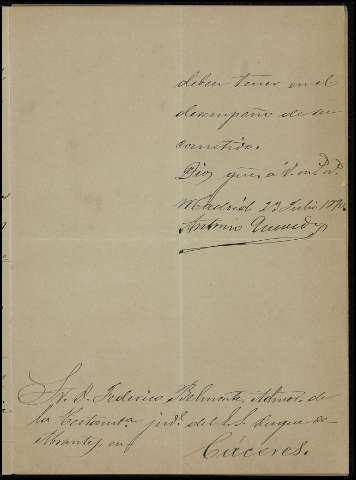 deben tener en el
desempeño de su
cometido.
Dios gue. á V. m. a.
Madrid 23 Julio 1874.
Antonio
Sr. D. Federico Belmonte, Admor. de
la Testamta. jud. del E. S. Duque de
Abrantes, en
Cáceres.